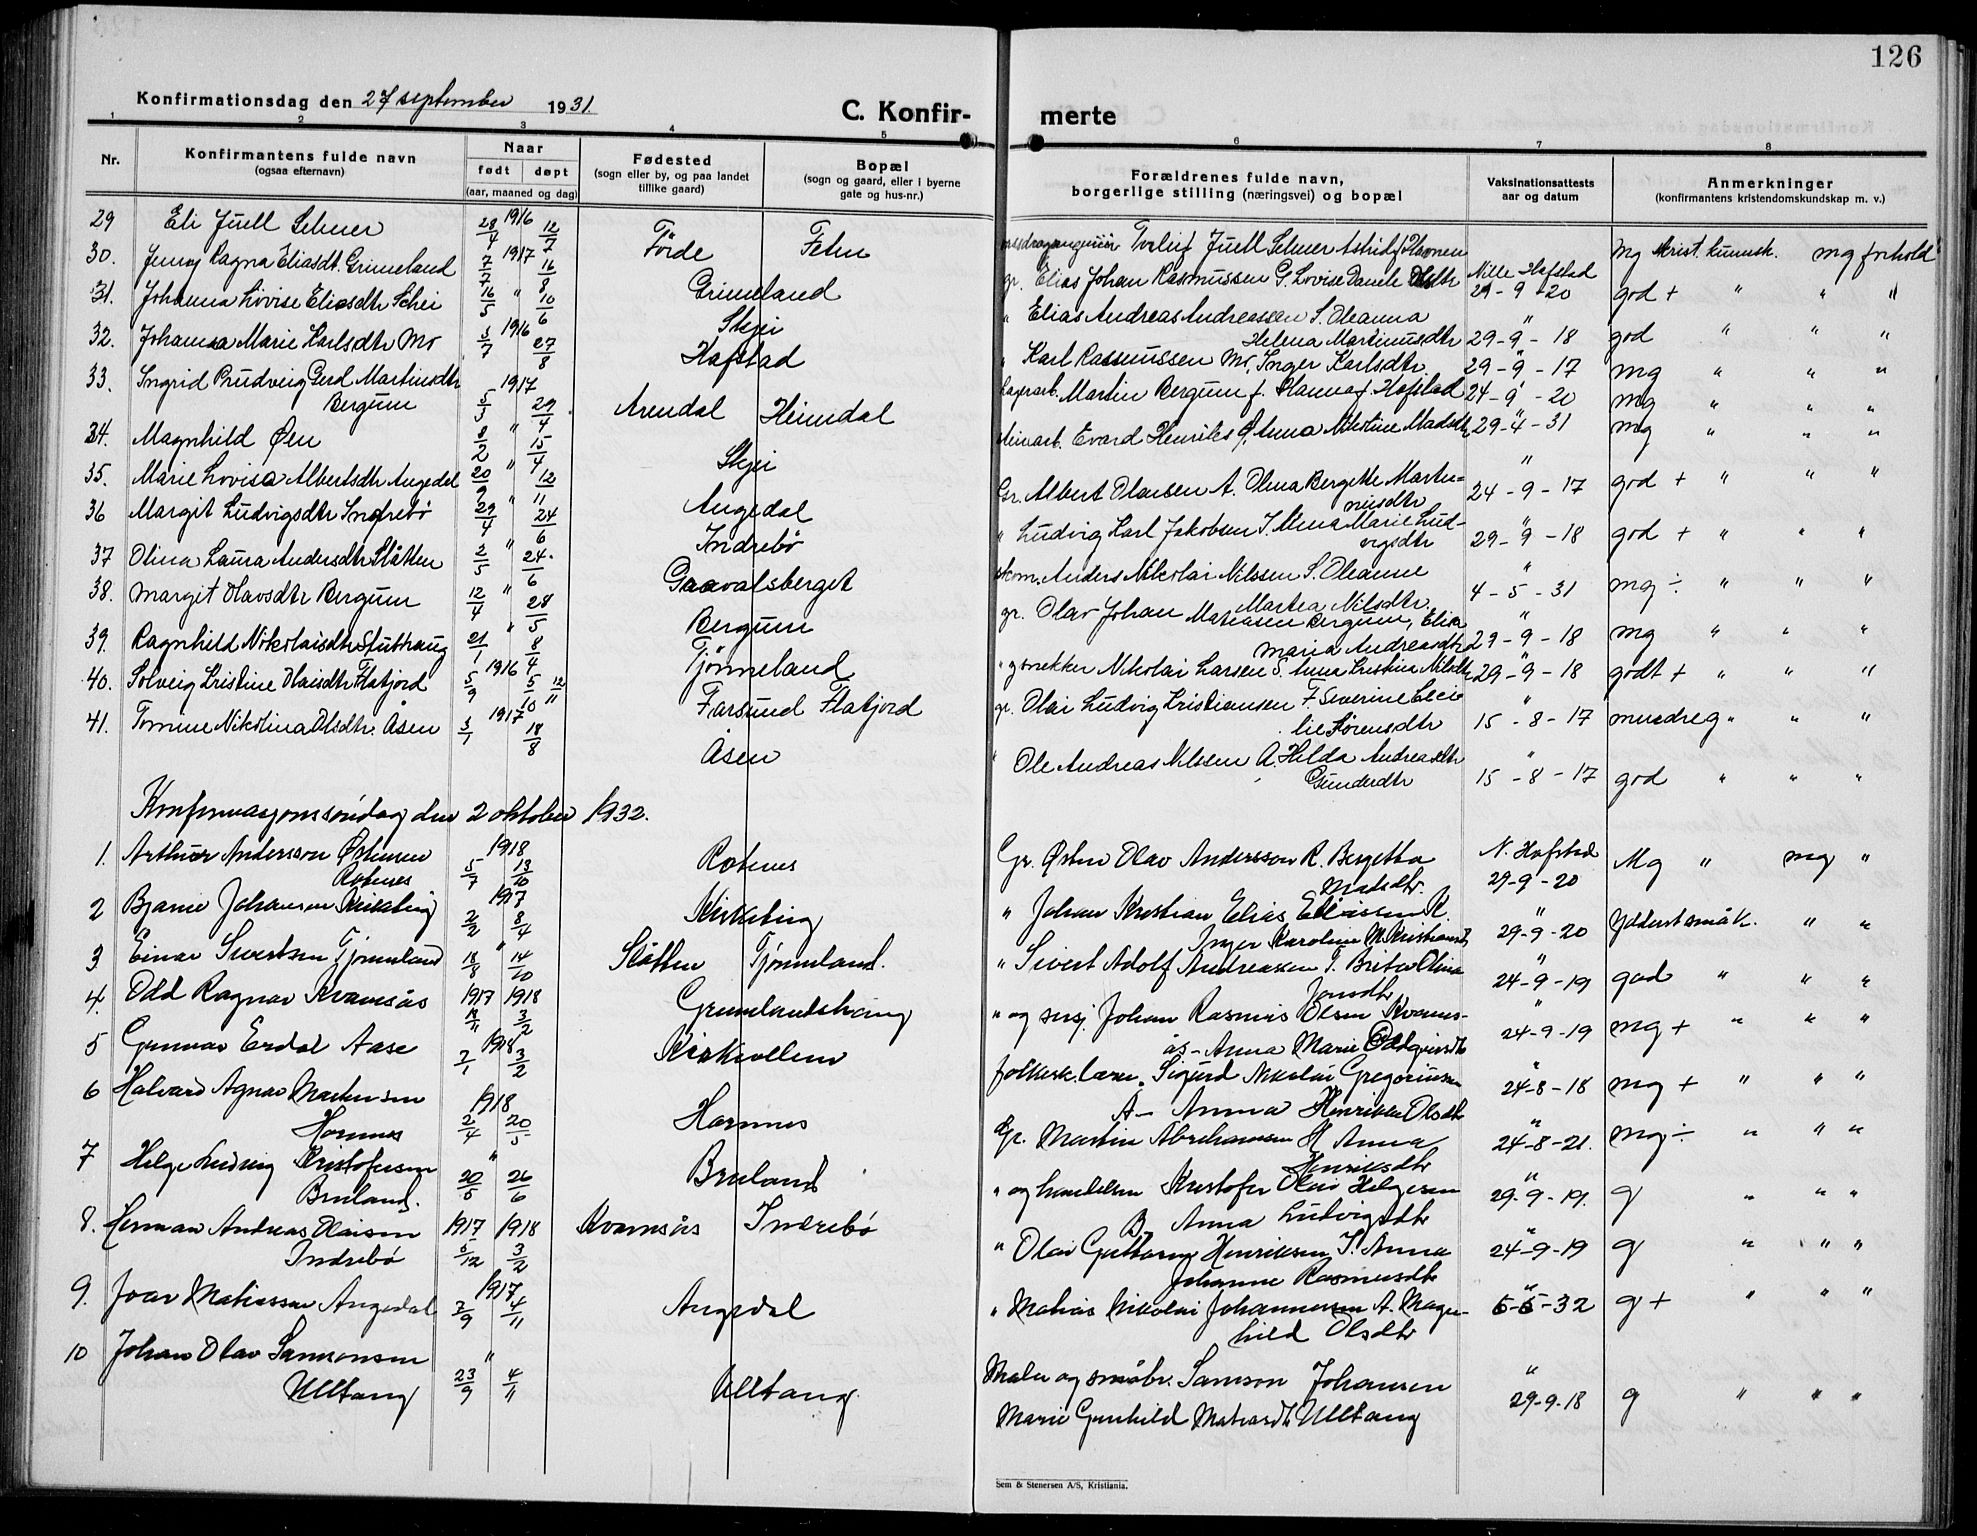 126
Konfirmationsdag den 27 september 1931.
C. Konfir-
merte
1 2 3 4 5 6 7 8
Nr.
Konfirmantens fulde navn
(ogsaa efternavn)
Naar
født døpt
(aar, maaned og dag)
Fødested
(sogn eller by, og paa landet
tillike gaard)
Bopæl
(sogn og gaard, eller i byerne
gate og hus-nr.)
Forældrenes fulde navn,
borgerlige stilling (næringsvei) og bopæl
Vaksinationsattests
aar og datum
Anmerkninger
(konfirmantens kristendomskundskap m. v.)
29 Eli Juell 28/4 1916 12/7 Förde Juell Mg krist. kunnsk. mg forhold
30. Jenny Ragna Eliasdt. Grimeland 7/7 1917 16/8 Grimeland gr. Elias Johan Rasmussen G. Lovise Nille Hafstad
29-9-20 god + " " "
31. Johanna Lovise Eliasdtr Schei 16/5 " 10/6 Skei " Elias Andreas Andreassen S. Oleanna
Helena Martinusdtr 29-9-18 god " " "
32. Johanna Marie Karlsdtr Mo 3/7 1916 27/8 Hafstad " Karl Rasmussen Mo, Inger Karlsdtr, 29-9-17 mg " " "
33. Ingrid Prudveig Gerd Martinsdtr
Bergum 5/3 1917 29/4 Arendal Heimdal Martin Bergum f. Hanna f. Hafstad 24-9-20 mg " " "
34. Magnhild Øen 8/2 " 15/4 Skei Evard Henriks Ø, Anna Nikoline Madsdtr 29-4-31 mg " " "
35. Marie Lovisa Albertsdtr Angedal 20/9 12/11 Angedal Gr. Albert Olausen A. Olina Bergette Marti-
nusdtr 24-9-17 god + " " "
36 Margit Ludvigsdtr Indrebö 29/4 " 24/6 Indrebö " Ludvig Karl Jakobsen I. Marie Lud-
vigsdtr 29-9-18 god + " " "
37 Olina Laura Andersdtr Slåtten 2/5 " 24/6 Gaavalsberget skom. Anders Nikolai Nilssen S. Oleanne
Martea Nilsdtr. 4-5-31 mg ÷ " " "
38. Margit Olavsdtr Bergum 12/4 " 28/5 Bergum gr. Olav Johan Matiasen Bergum, Elisa
Maria Andreasdtr 29-9-18 mg " " "
39. Ragnhild Nikolaisdtr Stubhaug 21/1 " 8/4 Tjönneland " g snekker Nikolai Larsen S. Anna Kristina Nilsdtr 29-9-18 godt + " " "
40. Solveig Kristine Olaisdtr Flatjord 5/9 1916 5/10 12/11 Farsund Flatjord gr. Olai Ludvig Kristiansen F. Severine
Sørensdtr 15-8-17 mindre g " " "
41. Tomine Nikolina Olsdtr. Åsen 3/1 1917 18/8 Åsen " Ole Andreas Nilssen A. Hilda Andreasdtr
Gundersdtr 15-8-17 god " " "
Konfirmasjonssöndag den 2 oktober 1932.
1. Arthur Andersson Østensen
Rotenes 5/7 1918 13/10 Rotenes Gr. Østen Olav Andersson R. Bergetha
Matsdtr. N. Hafstad
29-9-20 Mg " mg "
2 Bjarne Johansen 2/2 1917 8/4 " Johan Kristian Elias Eliassen K.
Inger Karoline M. 29-9-20 Ydderst småk. " "
3 Einar Sivertsen Tjønneland 18/8 " 14/10 Slåtten Tjønneland. " Sivert Adolf Andreassen T. Brita Olina
Jonsdtr 24-9-19 god " " "
4. Odd Ragnar Kvamsås 1917 1918 3/2 " og snej. Johan Rasmus Olsen Kvams-
ås - Anna Marie 24-9-19 mg + " " "
5 Gunnar Erdal Aase 2/1 1918 3/2 folkesk. lærer. Sigurd Nikolai Gregoriussen
A- Anna Henrikke Olsdtr 24-8-18 mg + " " "
6 Halvard Agnar Martinsen
Hornnes 2/4 1918 20/5 Hornnes Gr. Martin Abrahamsen H Anna
Henriksdtr 24-8-21. mg ÷ " " "
7 Helge Ludvig Kristofersen
Bruland. 20/5 " 26/6 Bruland " og handelsm Kristofer Olai Helgesen
B, Anna Ludvigsdtr 29-9-19. g " " "
8. Herman Andreas Olaisen
Indrebö 1917 1918 5/12 3/2 Kvamsås Indrebö " Olai Guttorm Henriksen I. Anna
Johanne Rasmusdtr 24-9-19 g " " "
9. Joar Matiassen Angedal 7/9 1917 4/11 Angedal " Matias Nikolai Johannessen A. Magn-
hild Olsdtr 6-5-32 g + " " "
10 Johan Olav Samsonsen
Ulltang 23/9 " 4/11 Ulltang. Maler og småbr. Samson Johansen
Marie Gunhild Matiasdtr Ulltang 29-9-18 g " " "
Sem & Stenersen A/S, Kristiania.